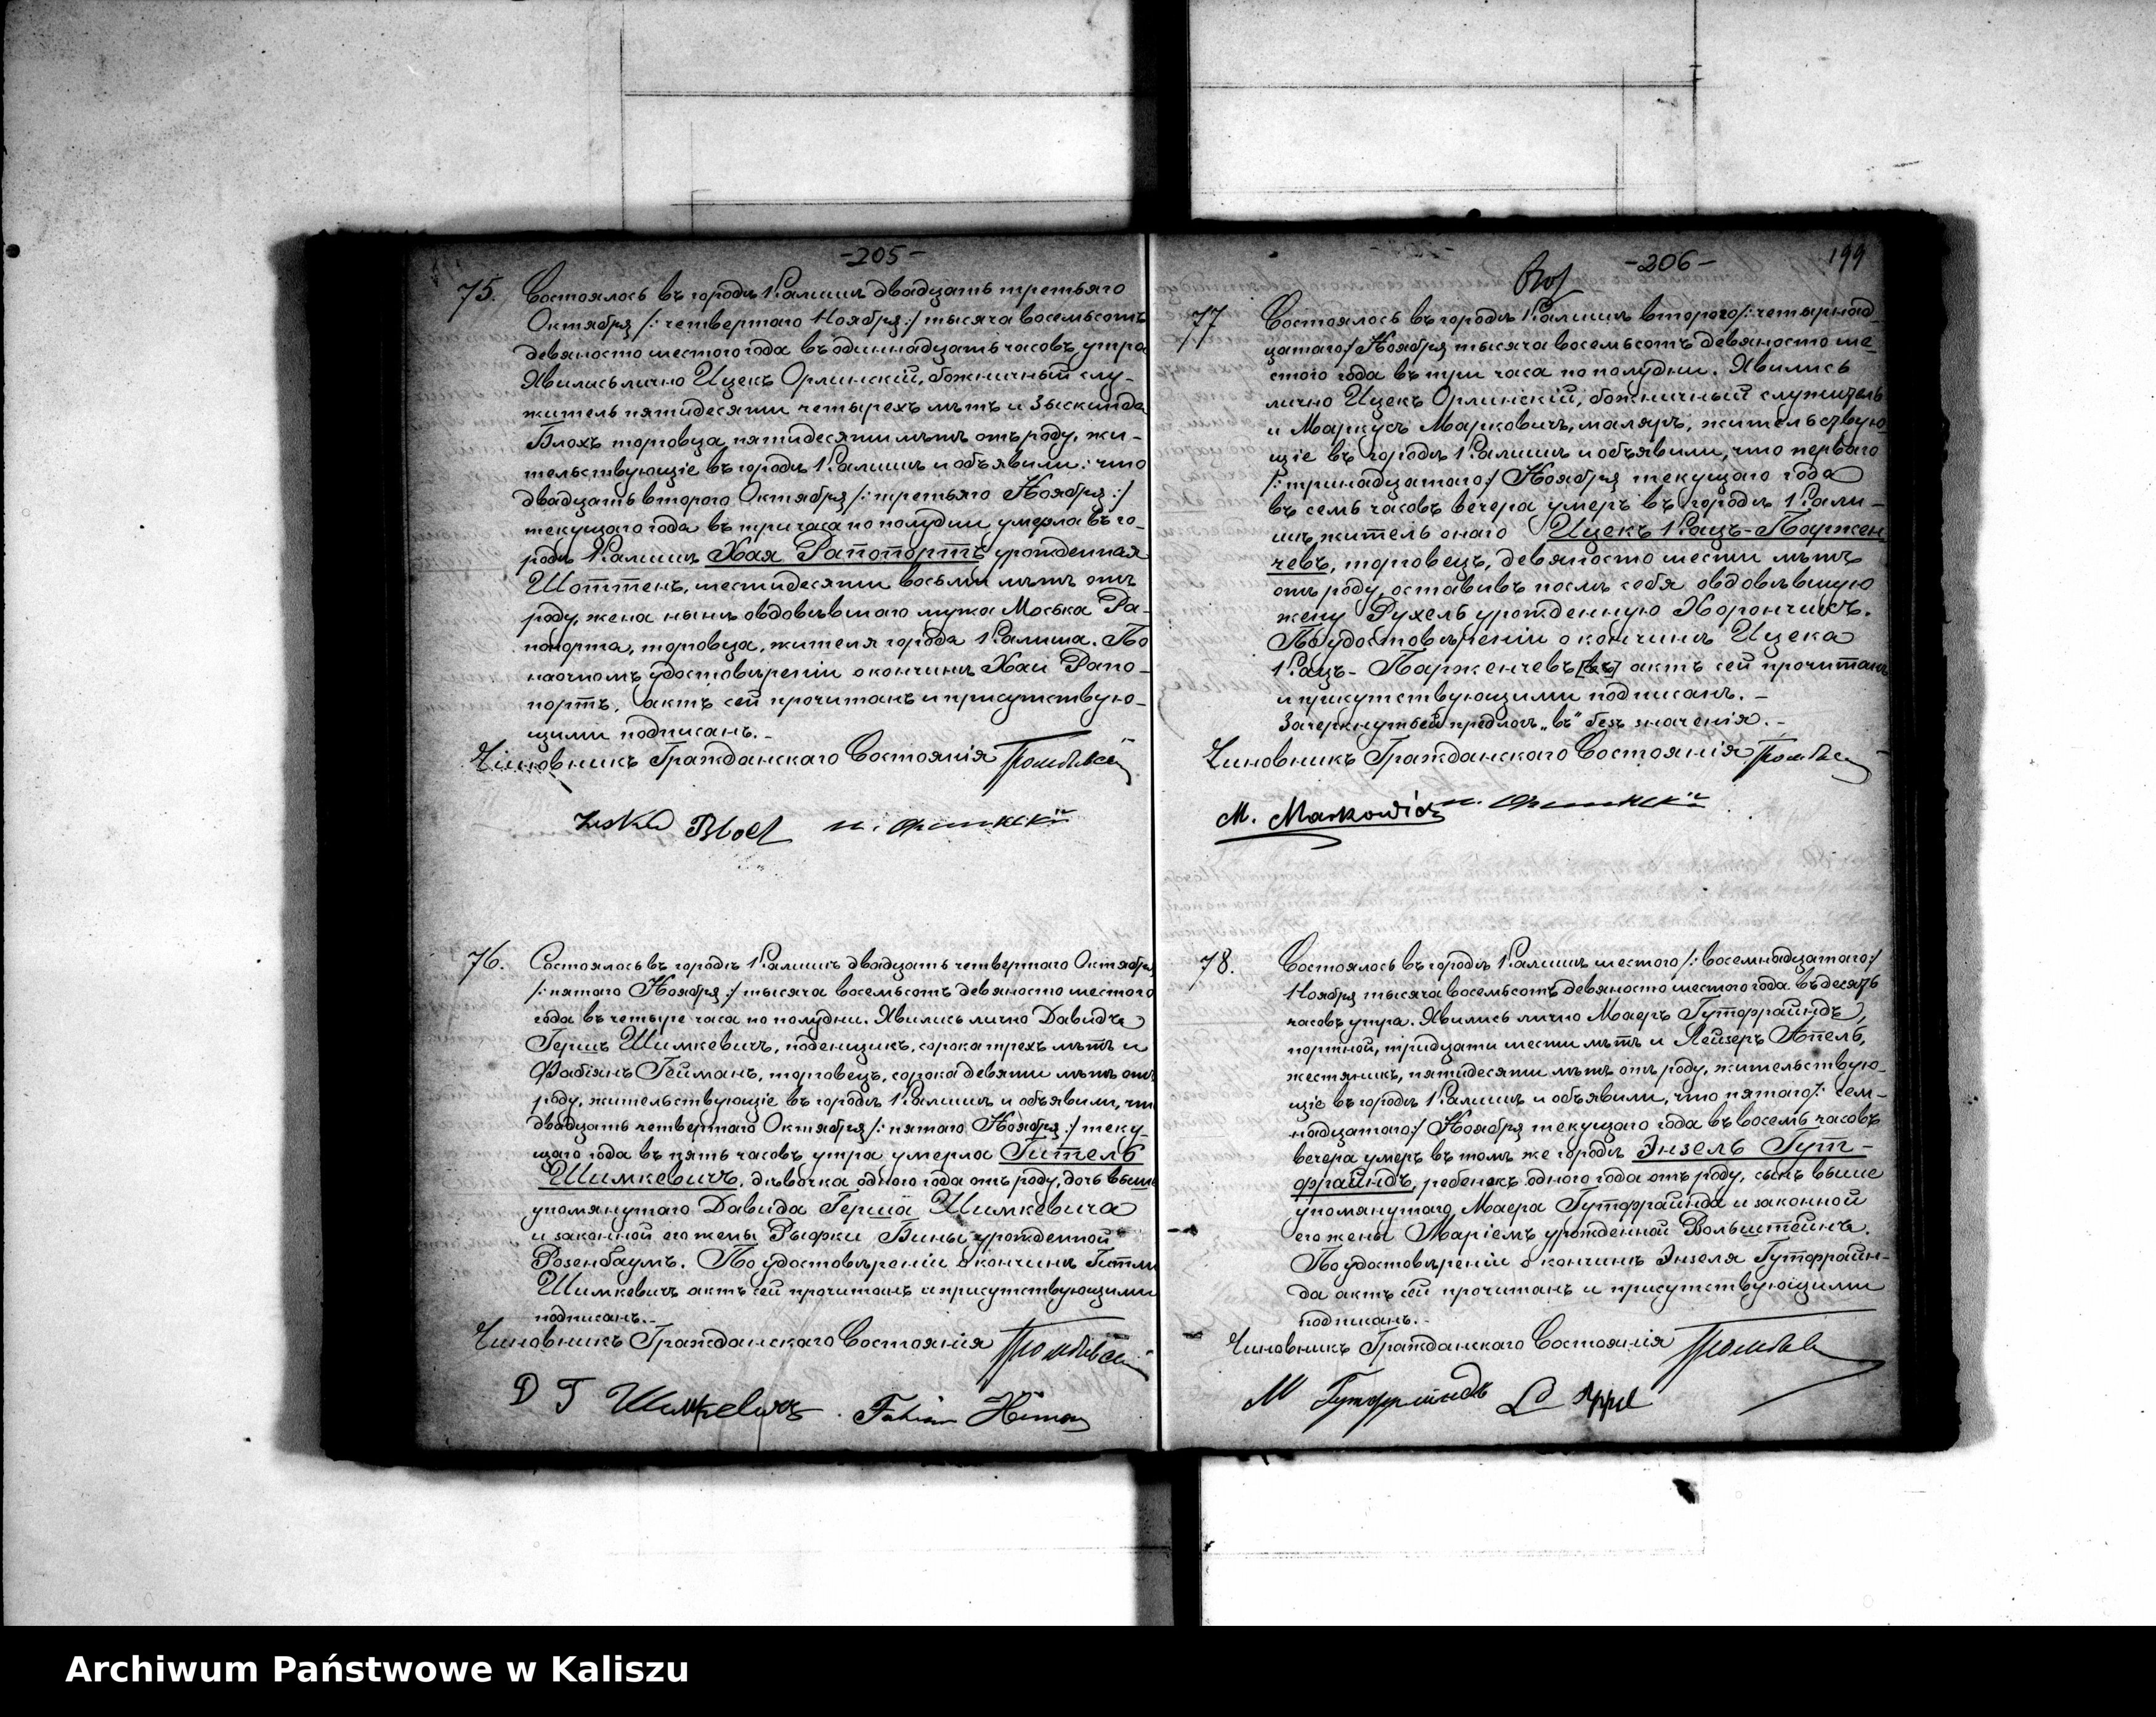 -205-
75. Состоялось въ городѣ Калишѣ двадцать третьяго
Октября /: четвертаго Ноября :/ тысяча восемьсотъ
девяносто шестого года въ одиннадцать часовъ утра
Явились лично Ицекъ Орлинскій, божничный слу-
житель пятидесяти четырехъ лѣтъ и Зыскинда
Блохъ торговца пятидесяти лѣтъ отъ роду, жи-
тельствующіе въ городѣ Калишѣ и объявили: что
двадцать второго Октября /: третьяго Ноября :/
текущаго года въ три часа по полудни умерла въ го-
родѣ Калишѣ Хая Рапопортъ урожденная
Шоттенъ, шестидесяти восьми лѣтъ отъ
роду, жена нынѣ овдовѣвшаго мужа Моська Ра-
попорта, торговца, жителя города Калиша. По
наочномъ удостовѣреніи о кончинѣ Хаи Рапо-
портъ, актъ сей прочитанъ и присутствую-
щими подписанъ.-
Чиновникъ Гражданскаго Состоянія
Bloch И. Орлинскій
76. Состоялось въ городѣ Калишѣ двадцать четвертаго Октября
/: пятаго Ноября :/ тысяча восемьсотъ девяносто шестого
года въ четыре часа по полудни. Явились лично Давидъ
Гершъ Шимкевичъ, поденщикъ, сорока трехъ лѣтъ и
Фабіянъ Гейманъ, торговецъ, сорока девяти лѣтъ отъ
роду, жительствующіе въ городѣ Калишѣ и объявили, что
двадцать четвертаго Октября /: пятаго Ноября :/ теку-
щаго года въ пять часовъ утра умерла Гитель
Шимкевичъ, дѣвочка одного года отъ роду, дочь выше
упомянутаго Давида Герша Шимкевича
и законной его жены Рыфки Бины урожденной
Розенбаумъ. По удостовѣреніи о кончинѣ Гитли
Шимкевичъ актъ сей прочитанъ и присутствующими
подписанъ.-
Чиновникъ Гражданскаго Состоянія
Д Г Шимкевичъ. Fabian Heiman
-206- 199
77 Состоялось въ городѣ Калишѣ второго /: четырнад-
цатаго :/ Ноября тысяча восемьсотъ девяносто ше-
стого года въ три часа по полудни. Явились
лично Ицекъ Орлинскій, божничный служитель
и Маркусъ Марковичъ, маляръ, жительствую-
щіе въ городѣ Калишѣ и объявили, что перваго
/: тринадцатаго :/ Ноября текущаго года
въ семь часовъ вечера умеръ въ городѣ Кали-
шѣ житель онаго Ицекъ Кацъ-Паржен
чевъ, торговецъ, девяносто шести лѣтъ
отъ роду, оставивъ послѣ себя овдовѣвшую
жену Рухель урожденную Хорончикъ.
По удостовѣреніи о кончинѣ Ицека
Кацъ-Парженчевъ [въ] актъ сей прочитанъ
и присутствующими подписанъ.-
Зачеркнутый предлогъ „въ" безъ значенія.-
Чиновникъ Гражданскаго Состоянія
M. Markowicz И. Орлинскій
78. Состоялось въ городѣ Калишѣ шестого /: восемнадцатаго :/
Ноября тысяча восемьсотъ девяносто шестого года въ десять
часовъ утра. Явились лично Маеръ Гутфрайндъ,
портной, тридцати шести лѣтъ и Лейзеръ Аппель,
жестяникъ, пятидесяти лѣтъ отъ роду, жительствую-
щіе въ городѣ Калишѣ и объявили, что пятаго /: сем-
надцатаго :/ Ноября текущаго года въ восемь часовъ
вечера умеръ въ томъ же городѣ Энзель Гут-
фрайндъ, ребенокъ одного года отъ роду, сынъ выше
упомянутаго Маера Гутфрайнда и законной
его жены Маріемъ урожденной Вольштейнъ.
По удостовѣреніи о кончинѣ Энзеля Гутфрайн-
да актъ сей прочитанъ и присутствующими
подписанъ.-
Чиновникъ Гражданскаго Состоянія
М Гутфрайндъ L Appel
Archiwum Państwowe w Kaliszu